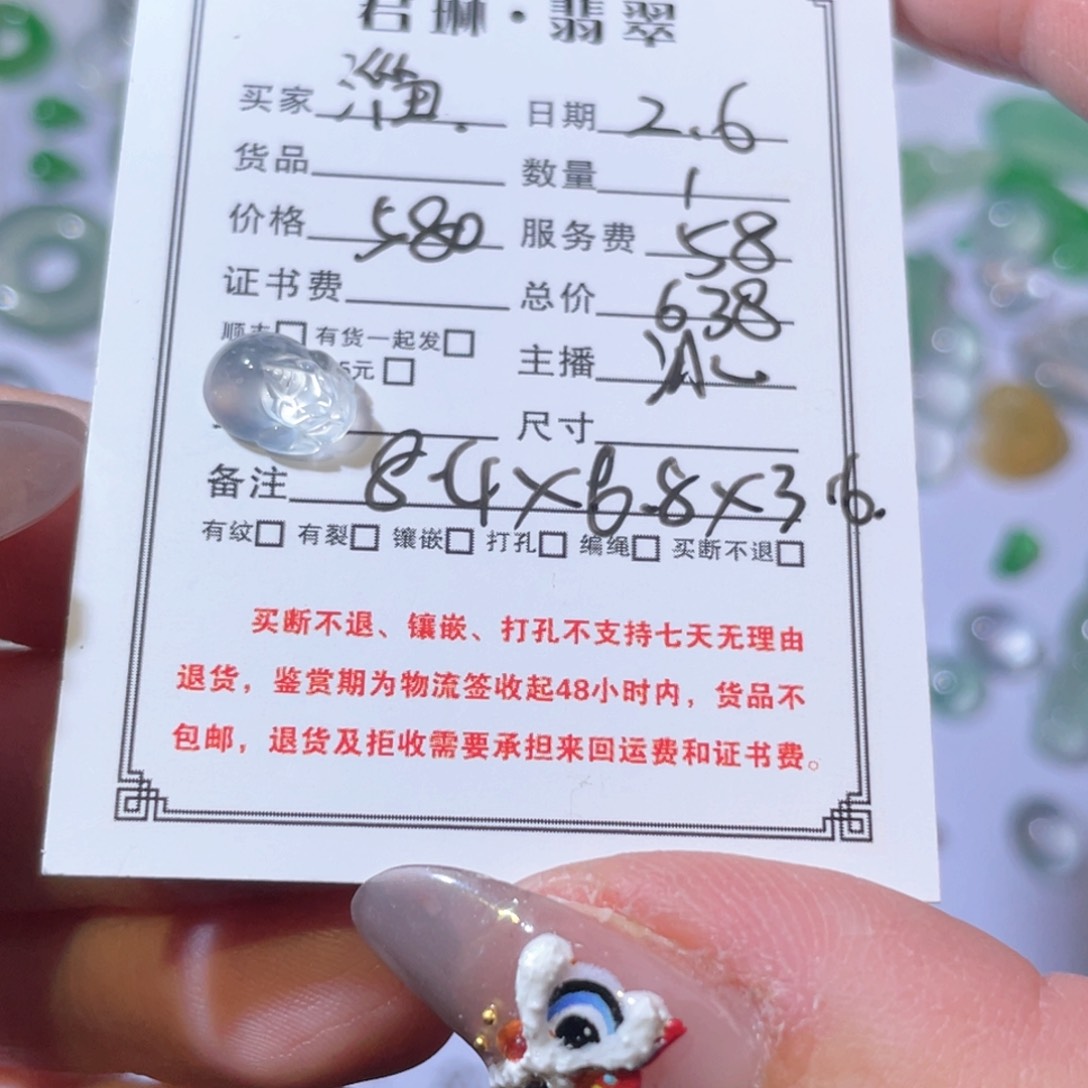 君琳·翡翠
买家 日期 2.6
货品 数量 1
价格 580 服务费 58
证书费 总价 638
顺丰□ 有货一起发□
5元□ 主播
尺寸
备注 3.6.
有纹□ 有裂□ 镶嵌□ 打孔□ 编绳□ 买断不退□
买断不退、镶嵌、打孔不支持七天无理由
退货，鉴赏期为物流签收起48小时内，货品不
包邮，退货及拒收需要承担来回运费和证书费。